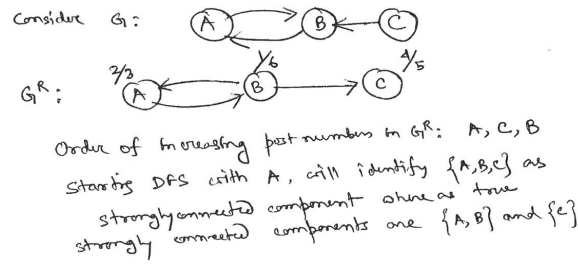 Consider G: A B C
2/3 1/6 4/5
G^R: A B C
Order of increasing post numbers in G^R: A, C, B
Starting DFS with A, will identify {A,B,C} as
strongly connected component where as true
strongly connected components are {A, B} and {C}